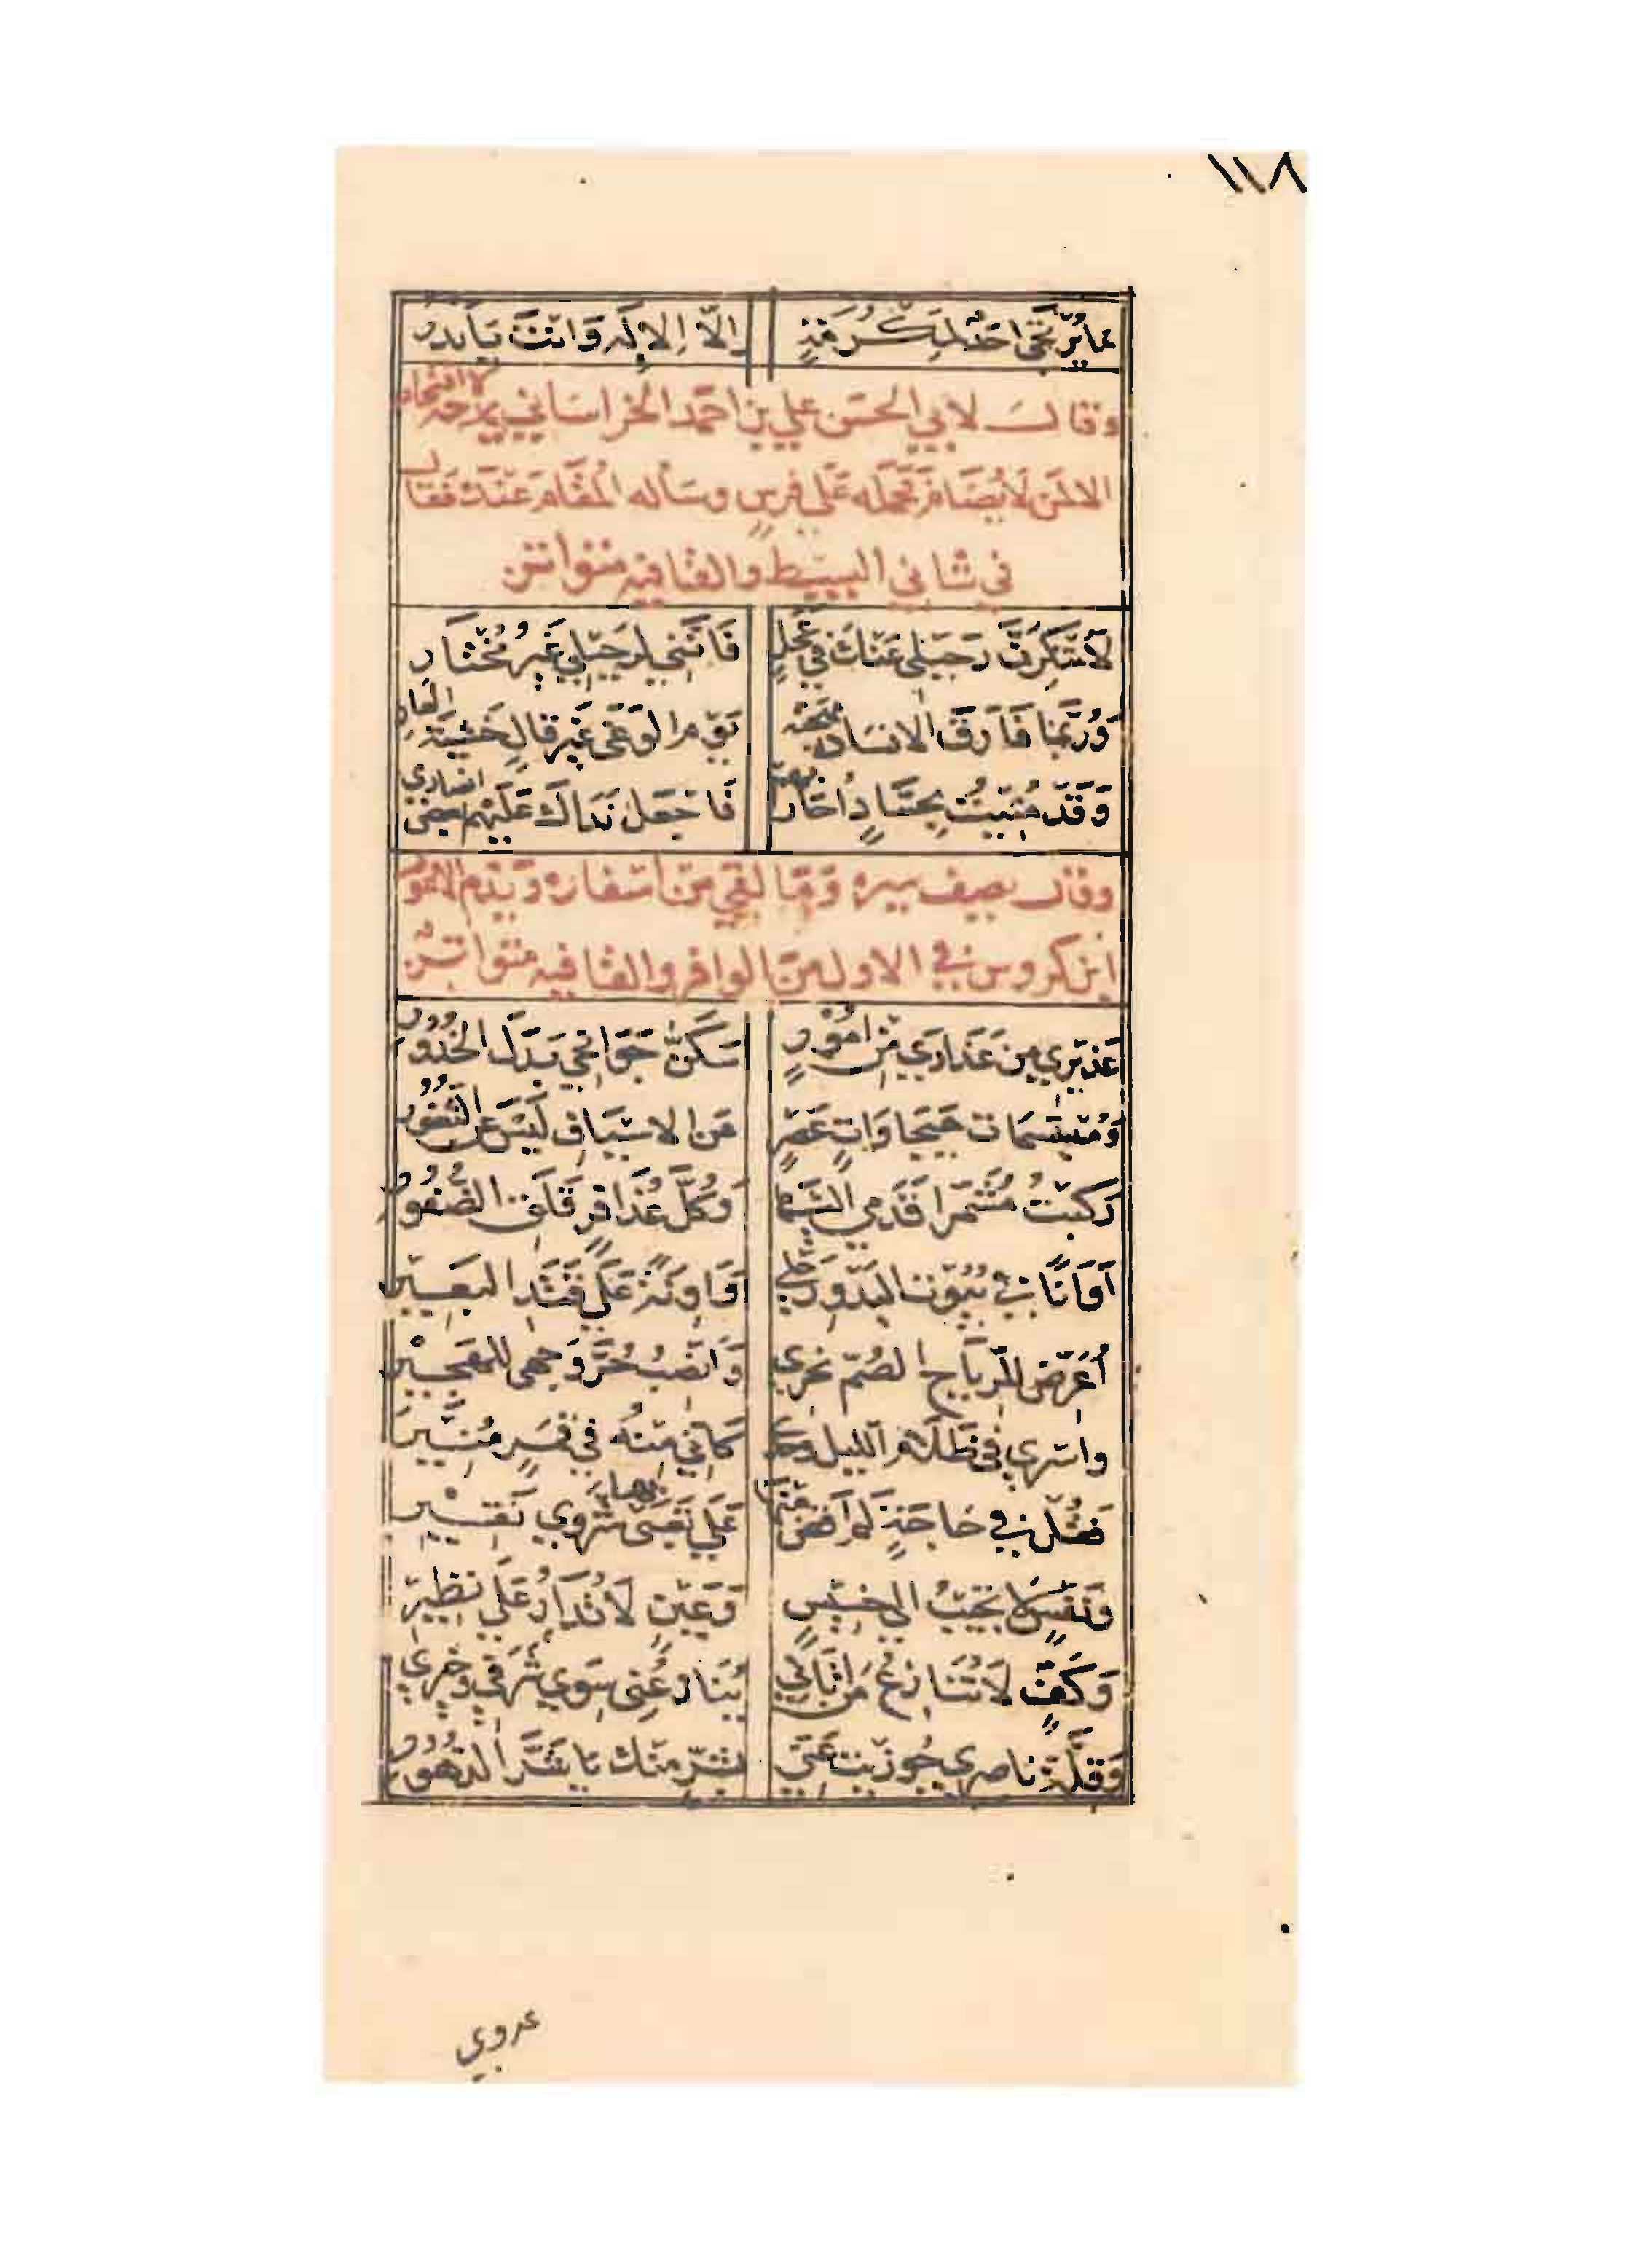 ١١٨
مَا يُرْتَجَى أَحَدٌ لِمَكْرُمَةٍ إِلَّا الإِلَهُ وَأَنْتَ يَا بَدْرُ
وقال لابي الحسن علي بن احمد الخراساني يمدحه لا افتخار
الا لمن لا يضام فحمله على فرس وسأله المقام عنده فقال
في ثاني البسيط والقافيه متواتر
لَا تُنْكِرَنَّ رَحِيلي عَنْكَ فِي عَجَلٍ فَإِنَّنِي لِرَحِيلي غَيْرُ مُخْتَارِ
وَرُبَّمَا فَارَقَ الانسان مهجته يَوْمَ الْوَغَى غَيْرَ قَالٍ خَشْيَةَ العار
وَقَدْ مُنِيتُ بِحُسَّادٍ أُحَاربهم فَاجْعَلْ نَدَاكَ عَلَيْهِمْ بعض انصاري
وقال يصف سيره وَمَا لَقِيَ من أسفاره وَيذم الاعور
ابن كروس في الاول من الوافر والقافيه متواتر
عَذِيرِي مِن عَذَارَي مِن أُمُورٍ سَكَنَّ جَوَانِحِي بَدَلَ الْخُدُورِ
وَمُبْتَسِمَات هَيْجَاوَاتِ عَصْرٍ عَن الاسْيَافِ لَيْسَ عَنِ الثُّغُورِ
رَكِبْتُ مُشَمِّرًا قَدَمِي اليها وَكُلَّ عُذَافِرٍ قَلِقِ الضُّفُورِ
أَوَانًا فِي بُيُوتِ الْبَدْوِ رَحْلِي وَآوِنَةً عَلَى قَتَدِ الْبَعِيرِ
أُعَرِّضُ لِلرِّمَاحِ الصُّمِّ نَحْرِي وَأَنْصِبُ حُرَّ وَجْهِي لِلْهَجِيرِ
واسري في ظَلَام الليل وحدي كَأَنِّي مِنْهُ فِي قَمَرٍ مُنِيرِ
فَقُلْ فِي حَاجَةٍ لَمْ أَقْضِ مِنْهَا عَلَى شغفي بها شَرْوَى نَقِيرِ
وَنَفْسٍ لَا تُجِيبُ الي خَسِيسٍ وَعَيْنٍ لَا تُدَارُ عَلَى نَظِيرِ
وَكَفٍّ لَا تُنَازِعُ مَن أَتَانِي يُنَازِعُنِي سِوَى شَرَفِي وَخِيرِي
وَقِلَّةِ نَاصِرٍ جُوزِيتَ عَنِّي بِشَرٍّ مِنْكَ يَا شَرَّ الدُّهُورِ
عدوي